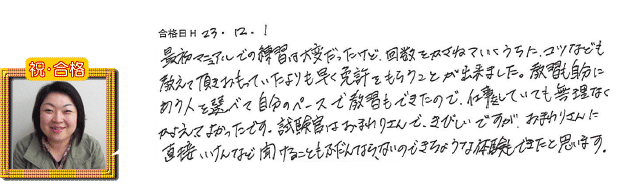 合格日H 23. 12. 1
祝・合格
最初マニアルでの練習は大変だったけど、回数をかさねていくうちに、コツなども
教えて頂きおもっていたよりも早く免許をもらうことが出来ました。教習も自分に
あう人を選べて自分のペースで教習もできたので、仕事していても無理なく
かよえてよかったです。試験官はおまわりさんで、きびしいですが おまわりさんに
直接いけんなど聞けることもふだんならないのできちょうな体験もできたと思います。